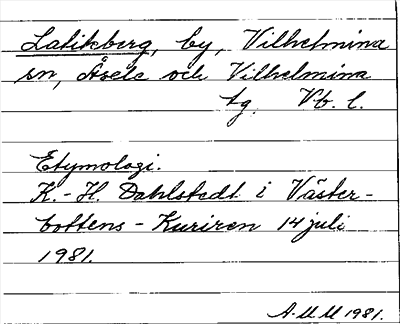 Latikberg, by, Vilhelmina
sn, Åsele och Vilhelmina
tg. Vb. l.
Etymologi.
K.-H. Dahlstedt i Väster-
bottens-Kuriren 14 juli
1981.
A.M.M 1981.